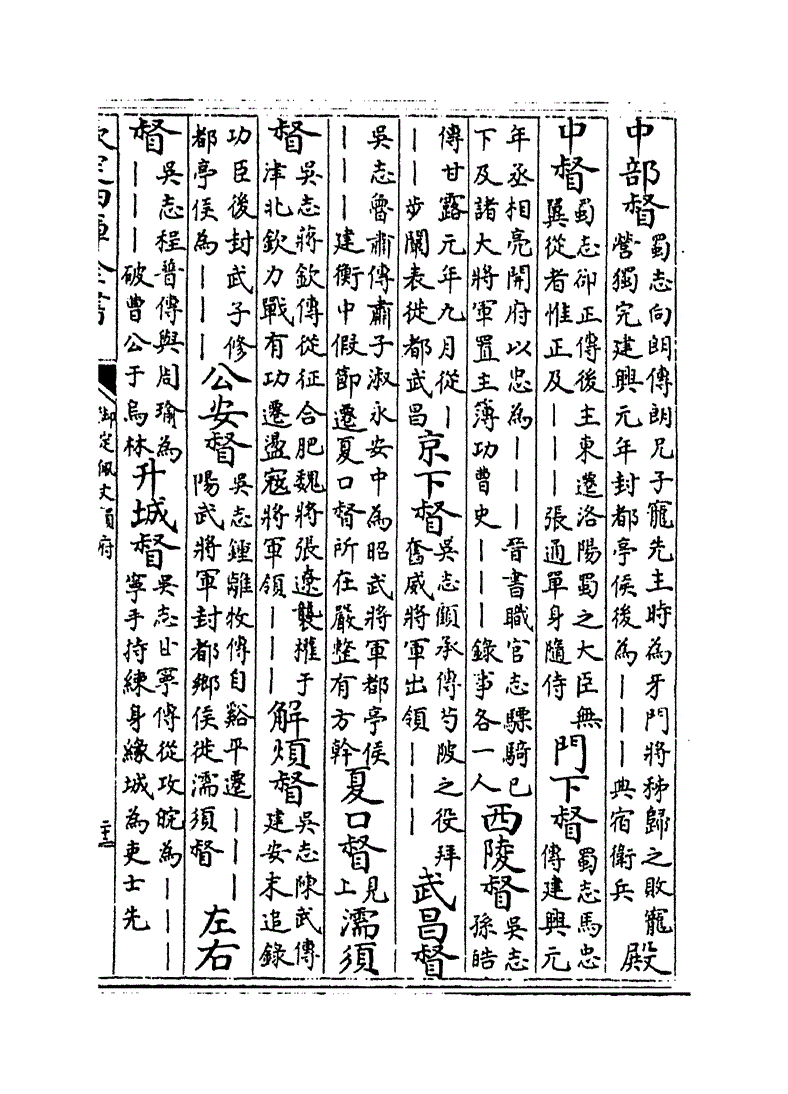 中部督蜀志向朗傳朗兄子寵先主時為牙門將秭歸之敗寵
營獨完建興元年封都亭侯後為｜｜｜典宿衛兵殿
中督蜀志郤正傳後主東遷洛陽蜀之大臣無
翼從者惟正及｜｜｜張通單身隨侍門下督蜀志馬忠
傳建興元
年丞相亮開府以忠為｜｜｜晉書職官志驃騎已
下及諸大將軍置主簿功曹史｜｜｜錄事各一人西陵督吳志
孫皓
傳甘露元年九月從｜
｜｜步闡表徙都武昌京下督吳志顧承傳芍陂之役拜
奮威將軍出領｜｜｜武昌督
吳志魯肅傳肅子淑永安中為昭武將軍都亭侯
｜｜｜建衡中假節遷夏口督所在嚴整有方幹夏口督見
上濡須
督吳志蔣欽傳從征合肥魏將張遼襲權于
津北欽力戰有功遷盪寇將軍領｜｜｜解煩督吳志陳武傳
建安末追錄
功臣後封武子修
都亭侯為｜｜｜公安督吳志鍾離牧傳自谿平遷｜｜｜
陽武將軍封都鄉侯徙濡須督左右
督吳志程普傳與周瑜為
｜｜｜破曹公于烏林升城督吳志甘寧傳從攻皖為｜｜｜
寧手持練身緣城為吏士先
欽定四庫全書
御定佩文韻府